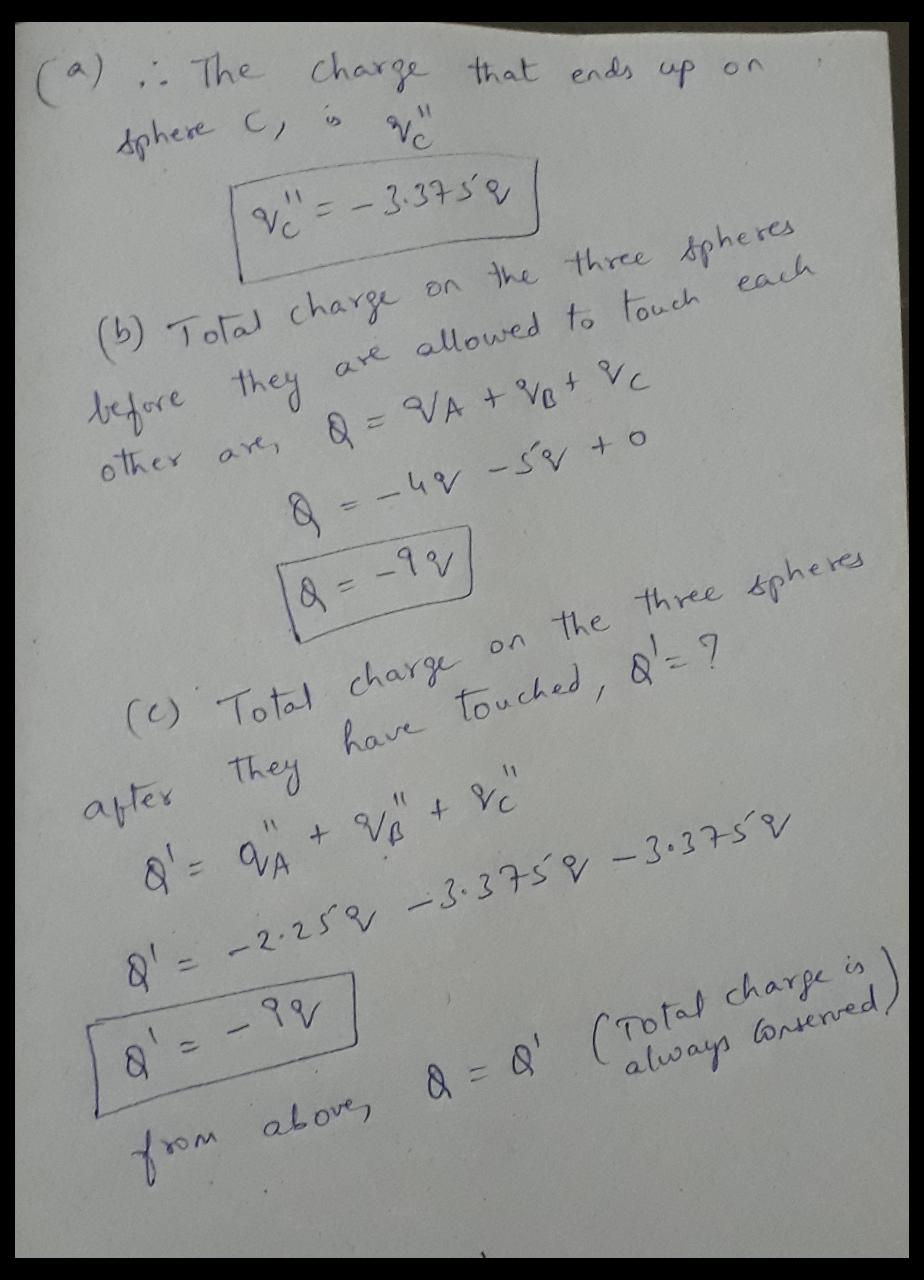 (a) ∴ The charge that ends up on
sphere C, is q_C''
q_C'' = -3.375q
(b) Total charge on the three spheres
before they are allowed to touch each
other are, Q = q_A + q_B + q_C
Q = -4q - 5q + 0
Q = -9q
(c) Total charge on the three spheres
after they have touched, Q' = ?
Q' = q_A'' + q_B'' + q_C''
Q' = -2.25q - 3.375q - 3.375q
Q' = -9q
from above, Q = Q' (Total charge is
always conserved)